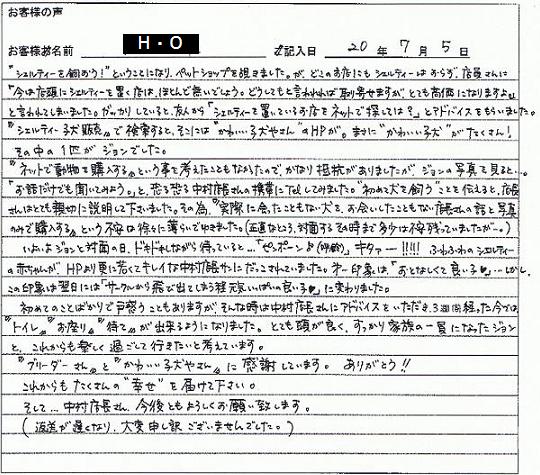 お客様の声
お客様お名前 H・O ご記入日 20年7月5日
"シェルティーを飼おう!"ということになり、ペットショップを覗きました。が、どこのお店にもシェルティーはおらず、店員さんに
「今は店頭にシェルティーを置く店は、ほとんど無いでしょう。どうしてもと言われれば取り寄せますが、とても高価になりますよ。」
と言われてしまいました。ガッカリしていると、友人から「シェルティーを置いているお店をネットで探しては?」とアドバイスをもらいました。
"シェルティー 子犬 販売"で検索すると、そこには"かわいい子犬やさん"のHPが。まさに"かわいい子犬"がたくさん!
その中の1匹がジョンでした。
"ネットで動物を購入する"という事を考えたこともなかったので、かなり抵抗がありましたが、ジョンの写真を見ると…。
「お話だけでも聞いてみよう。」と、恐る恐る中村店長さんの携帯にTelしてみました。"初めて犬を飼う"ことを伝えると、店長
さんはとても親切に説明して下さいました。その為、"実際に会ったこともない犬を、お会いしたこともない店長さんの話と写真
のみで購入する"という不安は徐々に薄らいでゆきました。(正直なところ、対面するその時まで多少は残っていましたが…。)
いよいよジョンと対面の日、ドキドキしながら待っていると…「ピンポーン♪」キター!!!!! ふわふわのシェルティー
の赤ちゃんが、HPより更に若くてキレイな中村店長さんにだっこされていました。第一印象は、「おとなしくて良い子♥」…しかし、
この印象は翌日には「サークルから飛び出てしまう程元気いっぱいの良い子♥」に変わりました。
初めてのことばかりで戸惑うこともありますが、そんな時は中村店長さんにアドバイスをいただき、3週間経った今では
"トイレ" "お座り" "待て"が出来るようになりました。とても頭が良く、すっかり家族の一員になったジョン
と、これからも楽しく過ごして行きたいと考えています。
"ブリーダーさん"と"かわいい子犬やさん"に感謝しています。ありがとう!!
これからもたくさんの"幸せ"を届けて下さい。
そして…中村店長さん、今後ともよろしくお願い致します。
(返送が遅くなり、大変申し訳ございませんでした。)